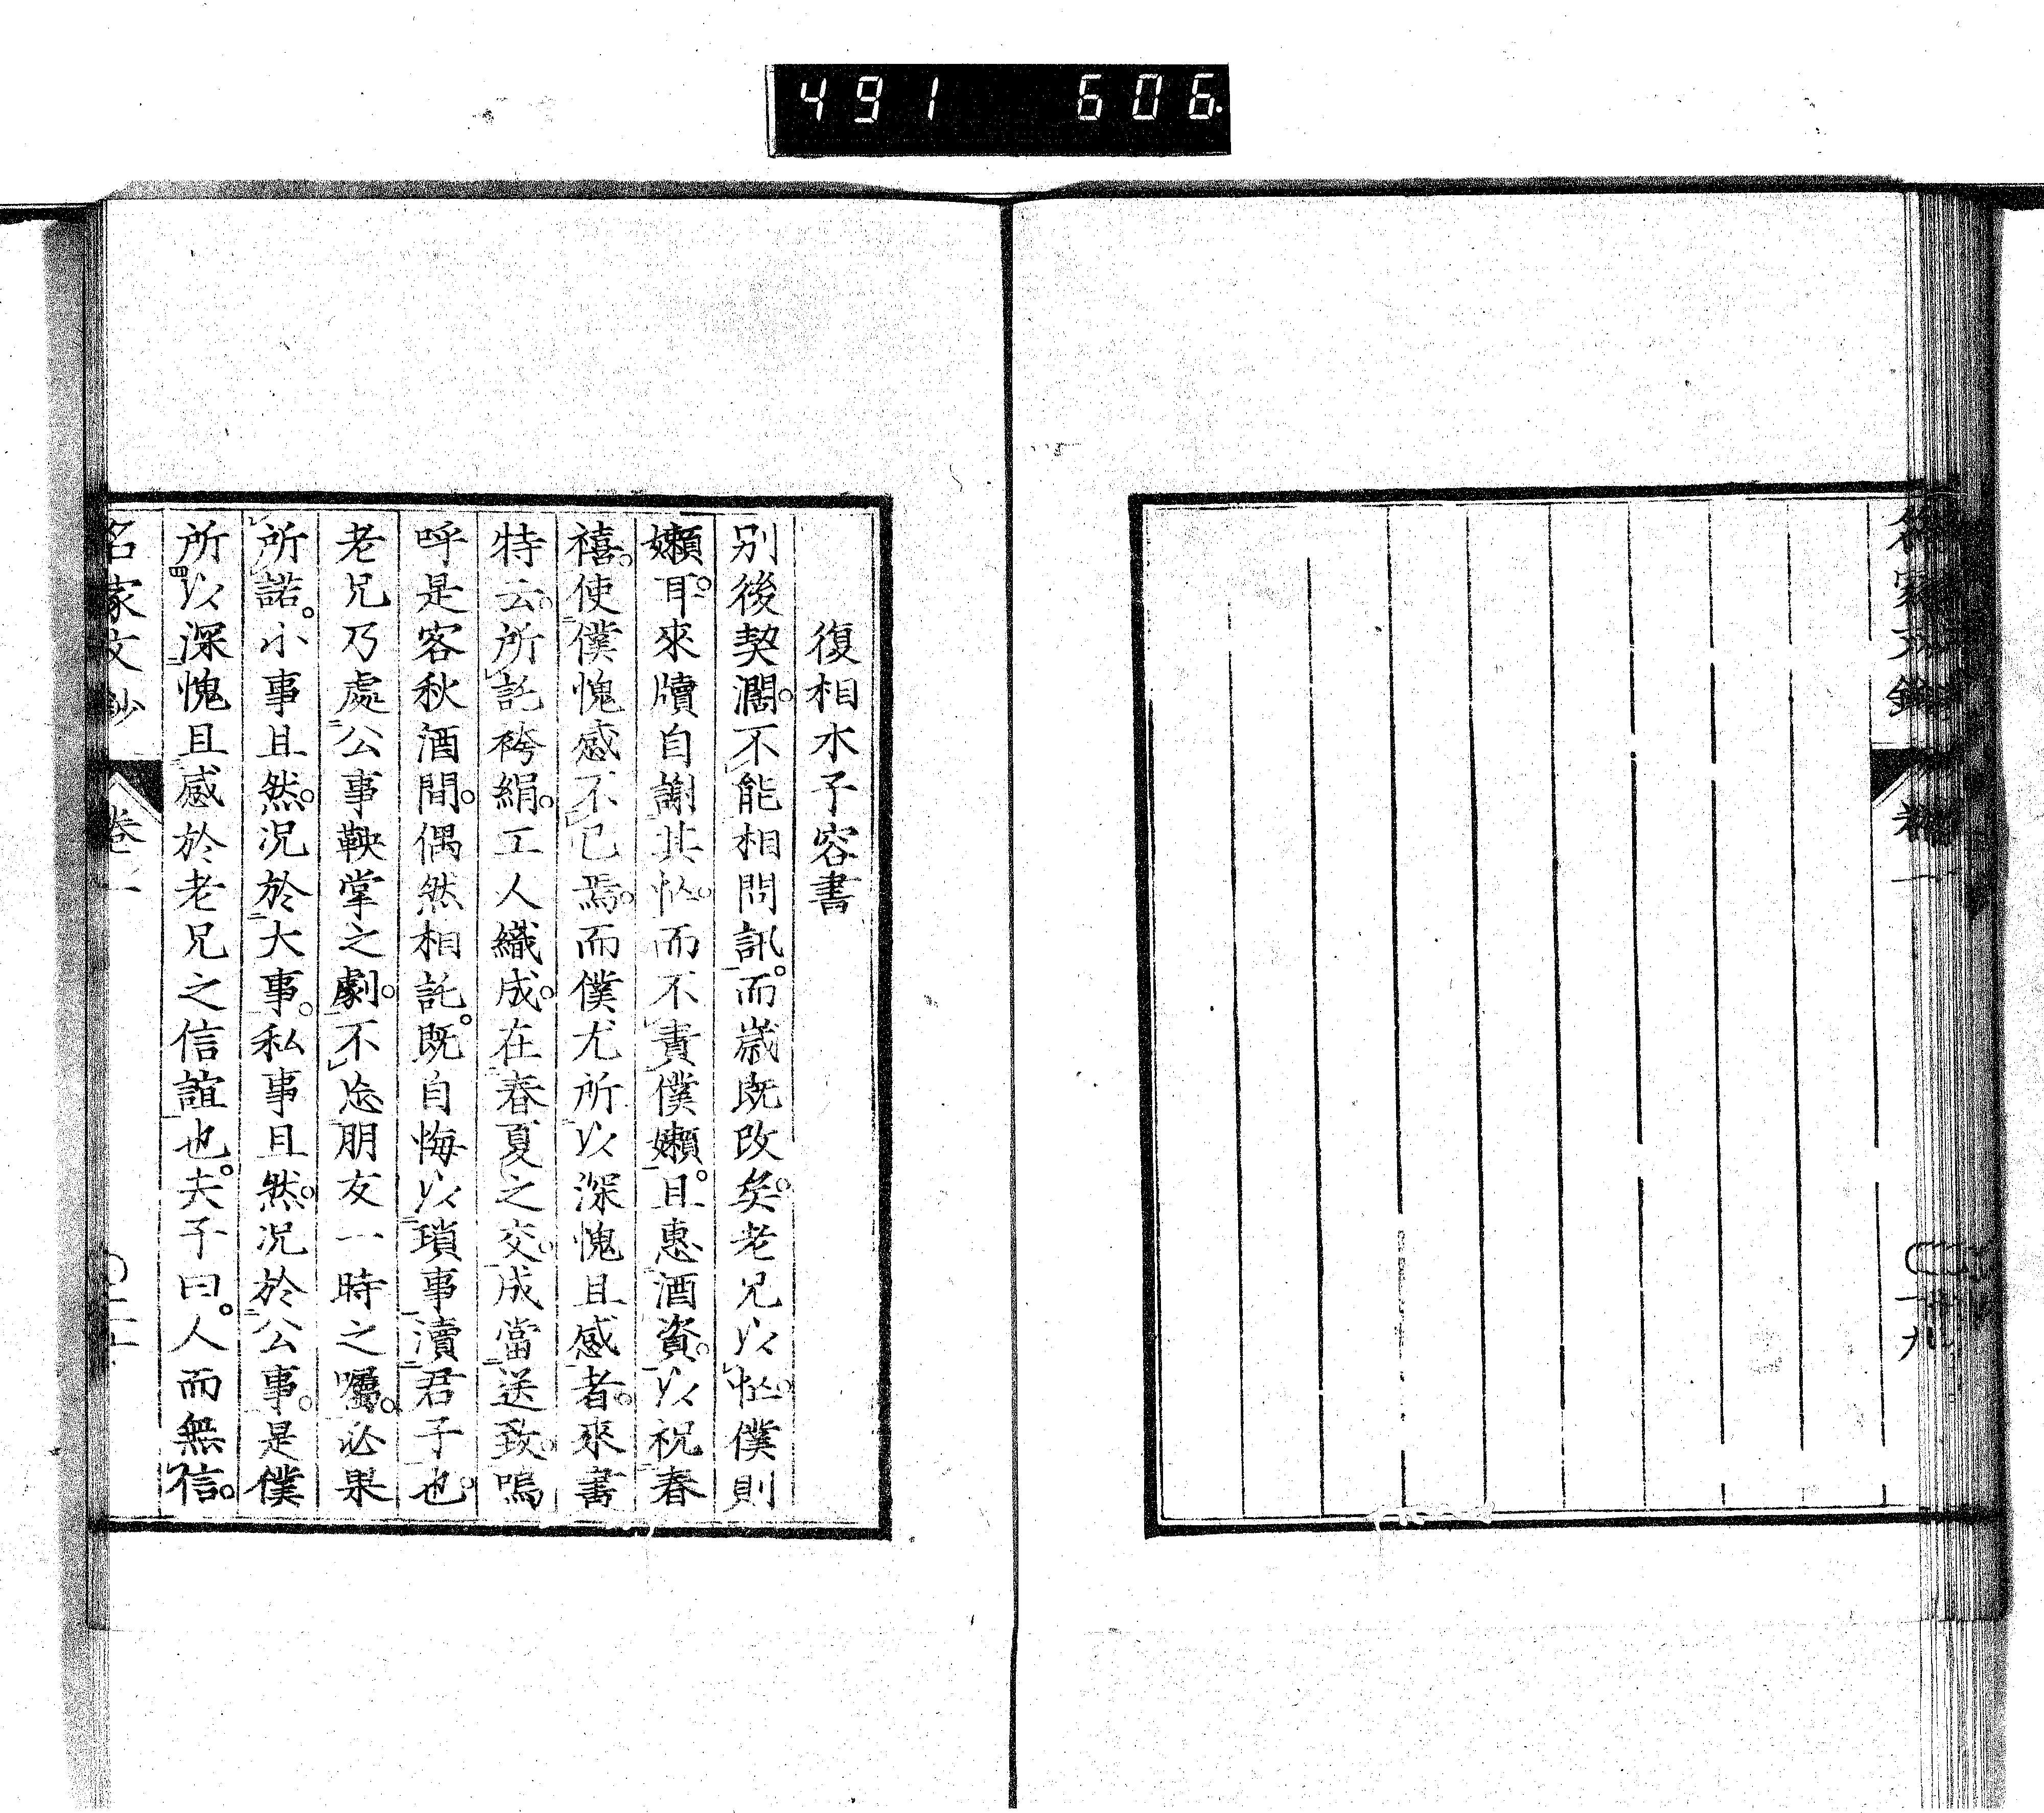 491 606.
復相水子容書
別後契濶。不能相問訊。而歳既改矣。老兄以忙。僕則
嬾。耳來牘自謝其忙。而不責僕嬾。且惠酒資。以祝春
禧。使僕愧感不已焉。而僕尤所以深愧且感者。來書
特云。所託袴絹。工人織成。在春夏之交。成當送致。嗚
呼是客秋酒間。偶然相託。既自悔以瑣事瀆君子也。
老兄乃處公事鞅掌之劇。不忘朋友一時之囑。必果
所諾。小事且然。況於大事。私事且然。況於公事。是僕
所以深愧且感於老兄之信誼也。夫子曰。人而無信。
名家文鈔 卷一